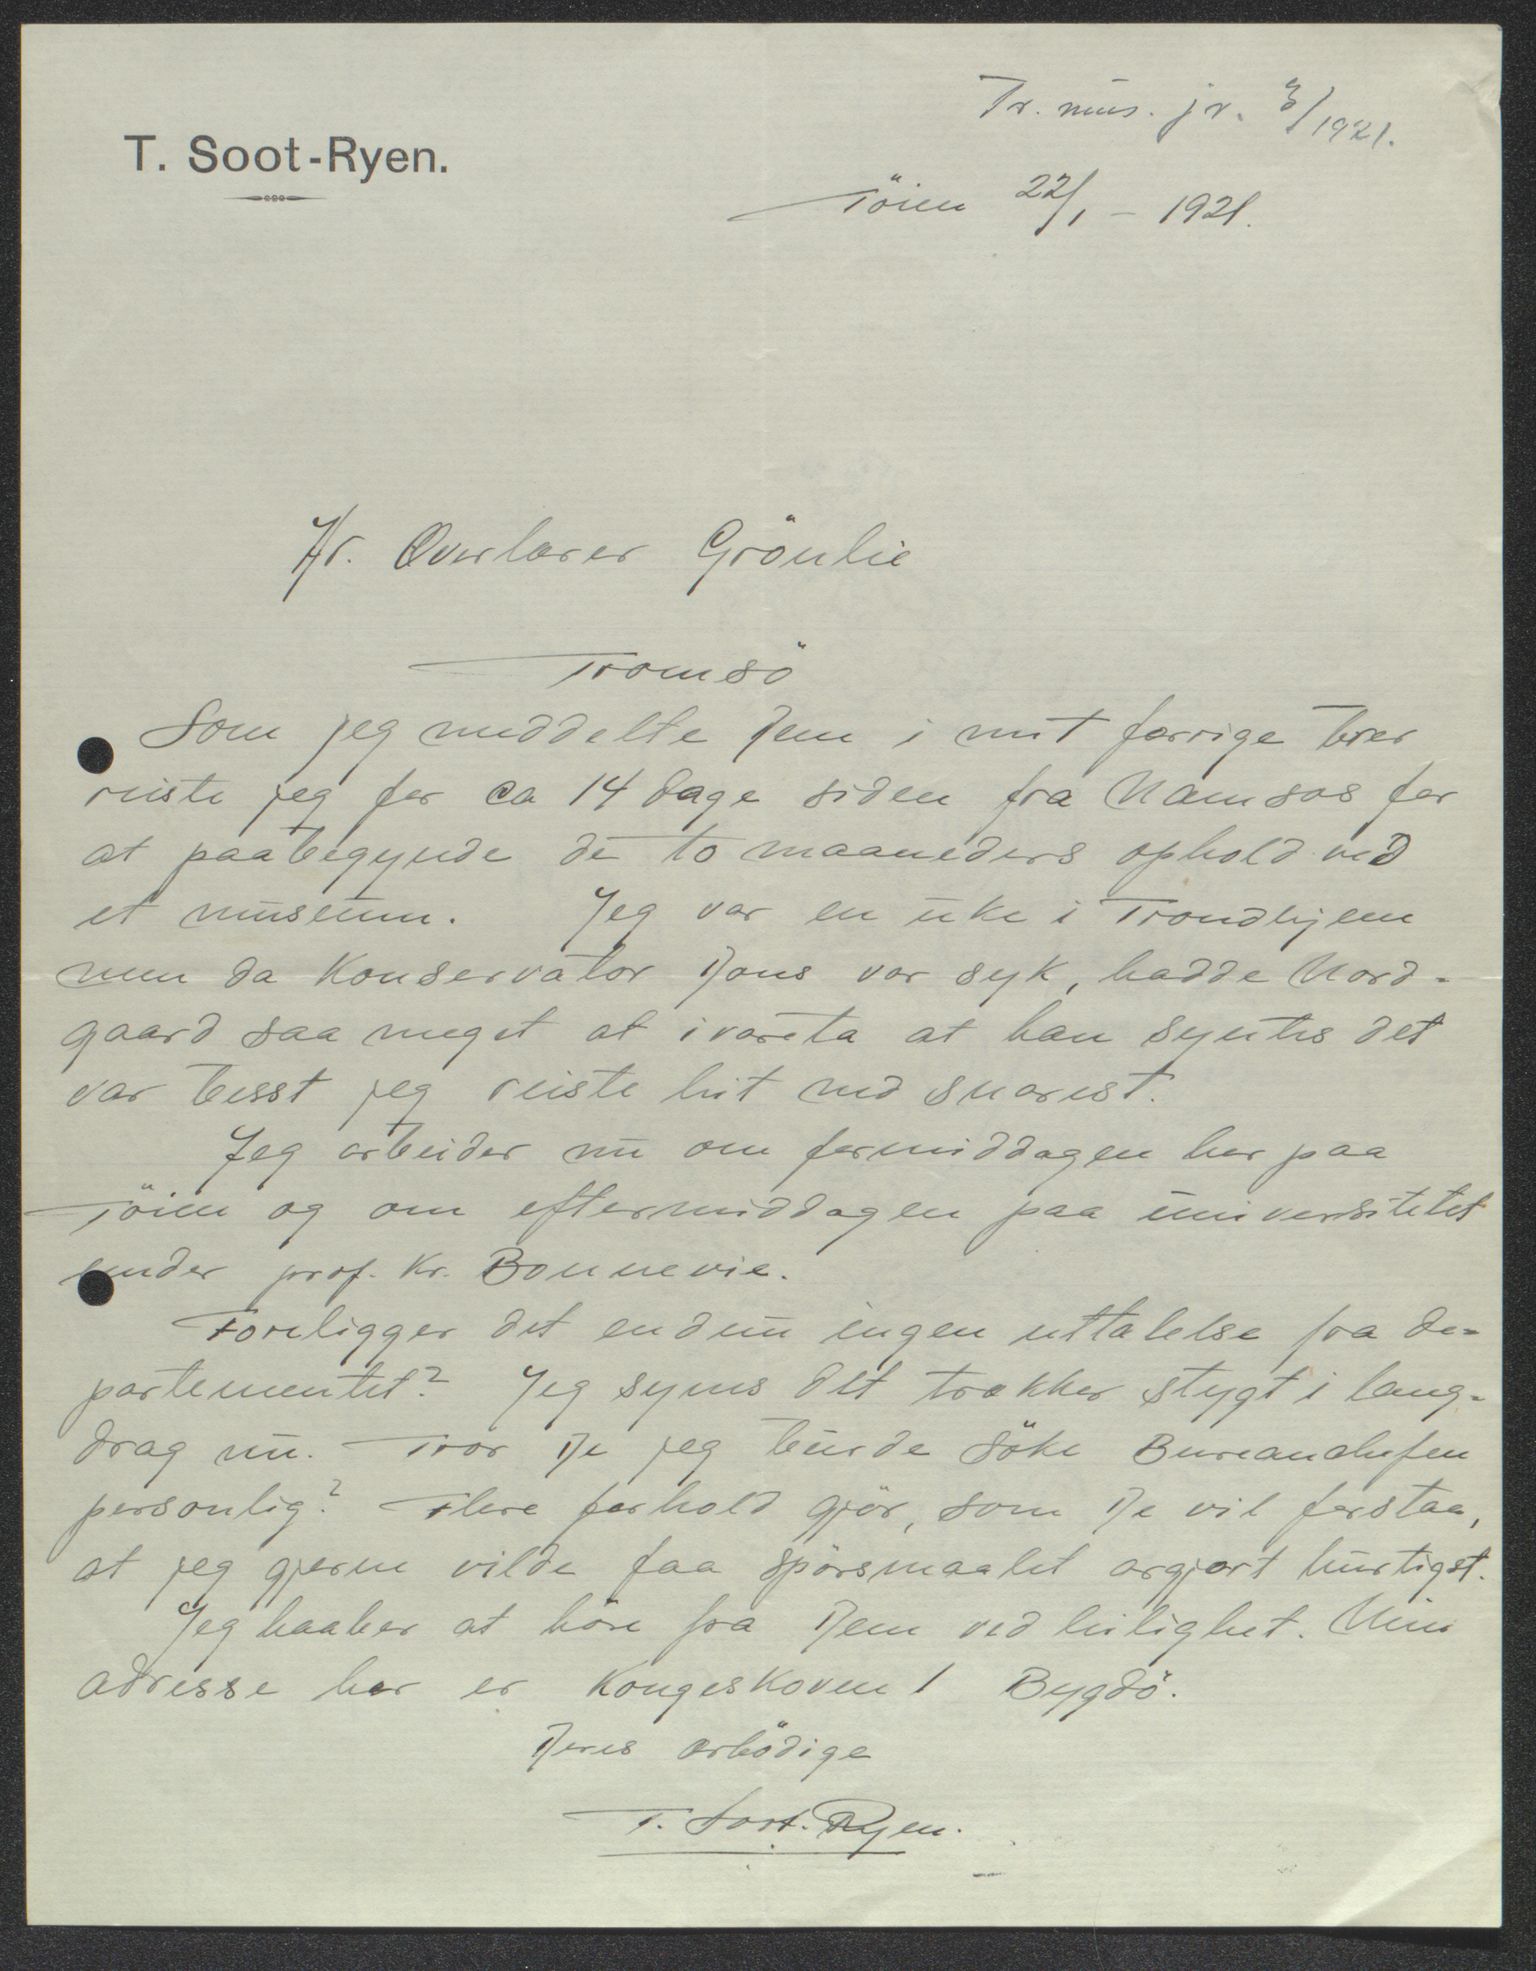 Tr. mus. jr. 3/1921.
T. Soot-Ryen.
Töien 22/1 - 1921.
Hr. Overlærer Grönlie
Tromsö
Som jeg meddelte Dem i mit forrige brev
reiste jeg for ca 14 dage siden fra Namsos for
at paabegynde de to maaneders ophold ved
et museum. Jeg var en uke i Trondhjem
men da Konservator Dons var syk, hadde Nord-
gaard saa meget at ivareta at han syntes det
var besst jeg reiste hit ned snarest.
Jeg arbeider nu om formiddagen her paa
Töien og om eftermiddagen paa universitetet
under prof. Kr. Bonnevie.
Foreligger det endnu ingen uttalelse fra de-
partementet? Jeg synes det trækker stygt i lang-
drag nu. Tror De jeg burde söke Bureauchefen
personlig? Flere forhold gjör, som De vil forstaa,
at jeg gjerne vilde faa spörsmaalet avgjort hurtigst.
Jeg haaber at höre fra Dem ved leilighet. Min
adresse her er Kongeskoven 1 Bygdö.
Deres ærbödige
T. Soot-Ryen.